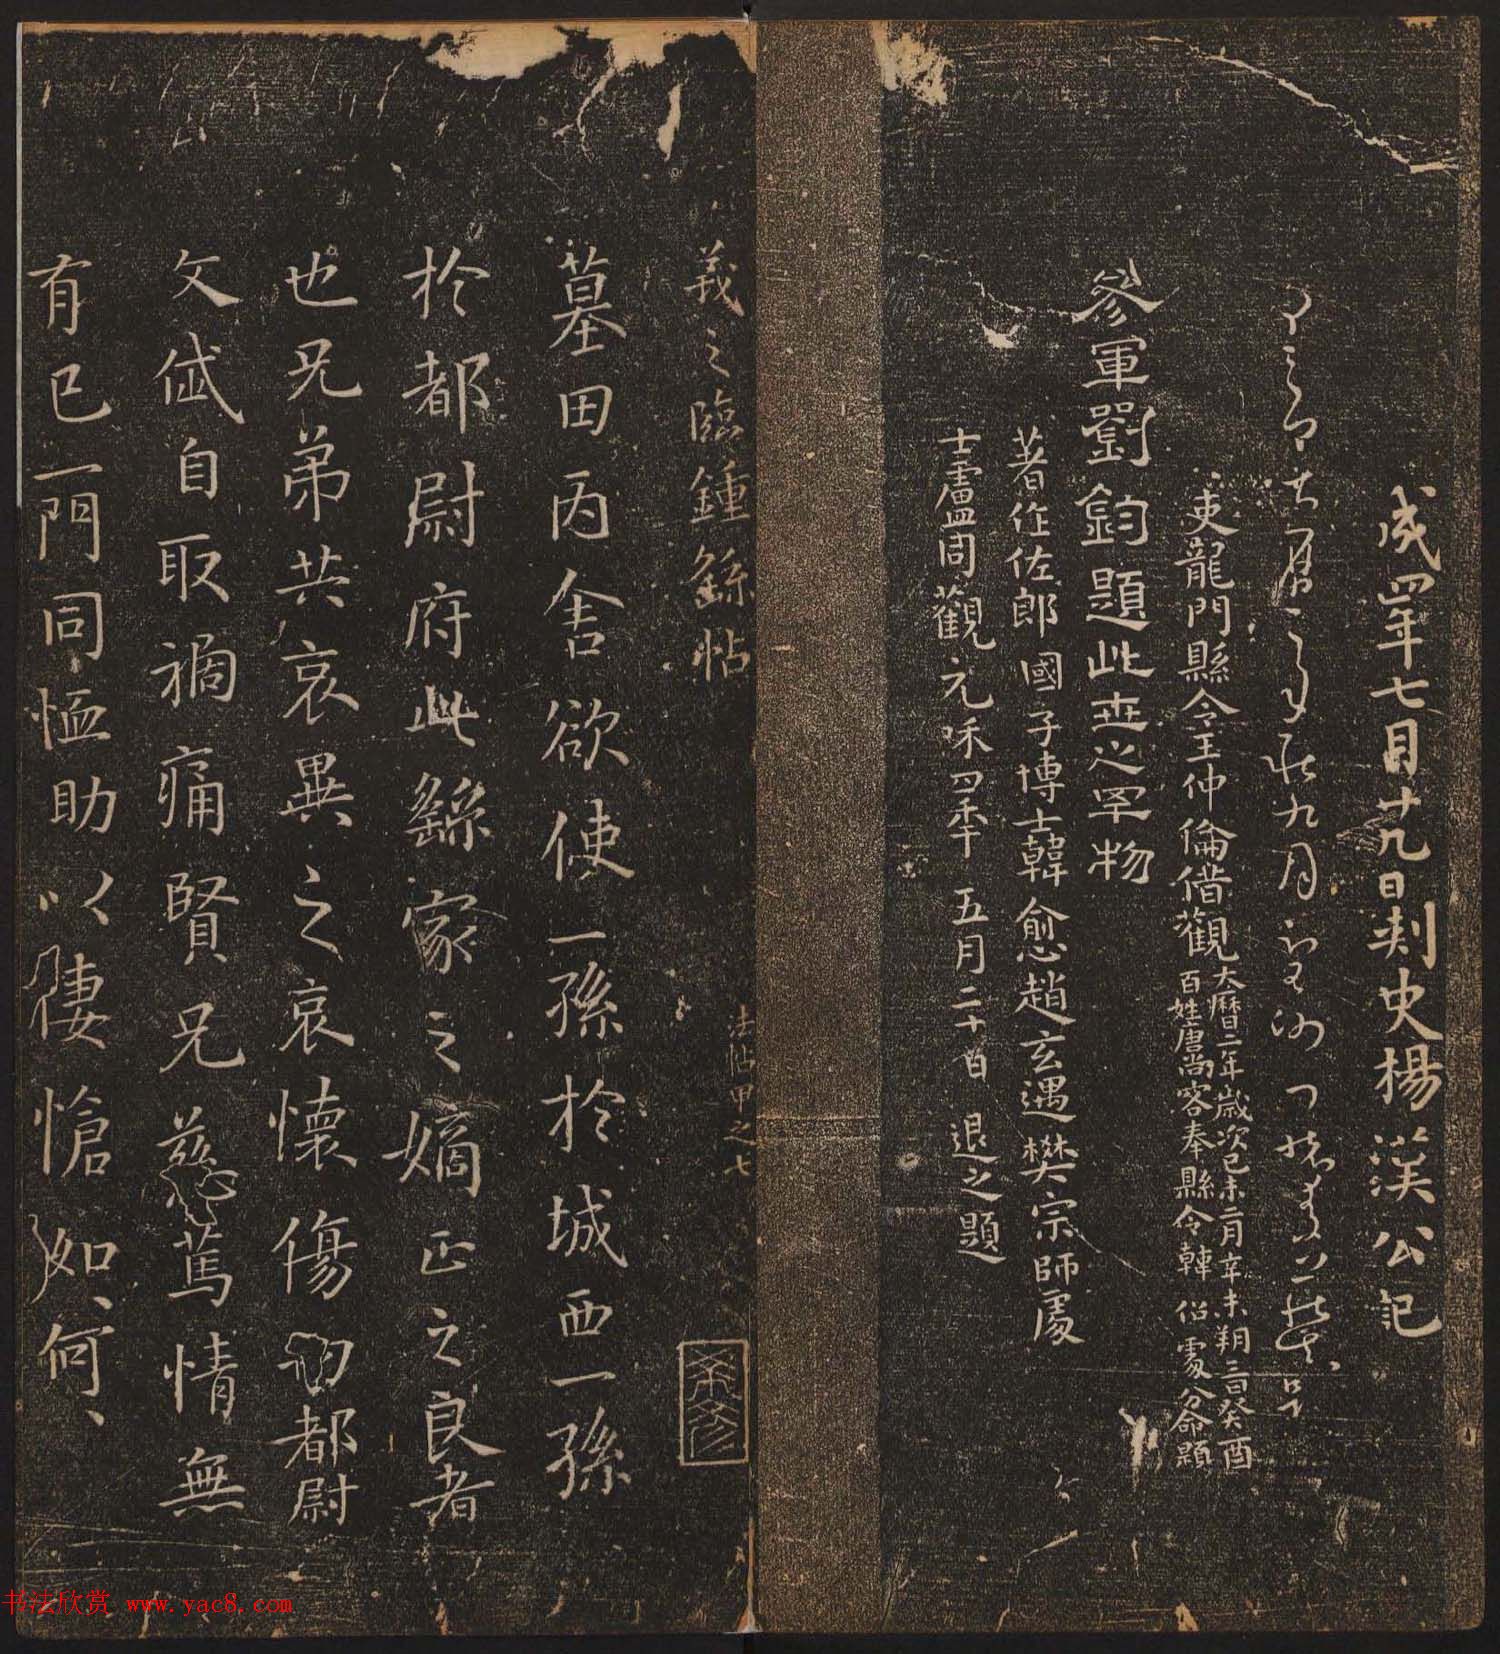 成四年七月廿九日刺史楊漢公記
九月
吏龍門縣令王仲倫借觀
大曆二年歲次己未二月辛未朔三日癸酉
百姓唐尚客奉縣令韓佋處分命題
參軍劉鈞題此世之罕物
著作佐郎國子博士韓愈趙玄遇樊宗師處
士盧同觀元和四年五月二十日退之題
羲之臨鍾繇帖
法帖甲之七
墓田丙舍欲使一孫於城西一孫
於都尉府此繇家之嫡正之良者
也兄弟共哀異之哀懷傷切都尉
文岱自取禍痛賢兄慈篤情無
有已一門同恤助以悽愴如何
书法欣赏 www.yac8.com